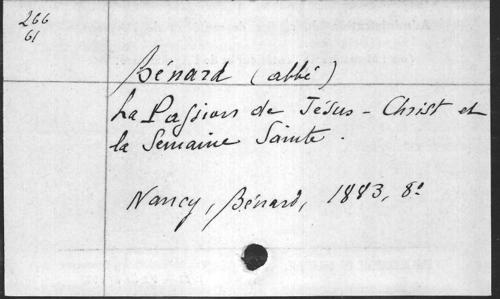 266
61
Bénard (abbé)
La Passion de Jésus-Christ et
la Semaine Sainte.
Nancy, Bénard, 1883, 8º